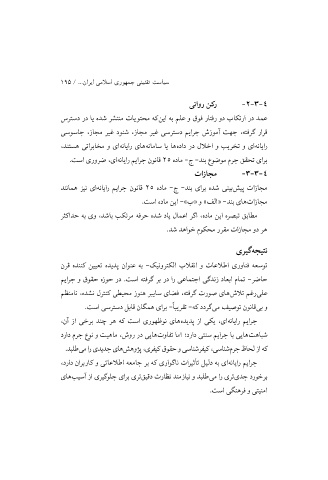 سیاست تقنینی جمهوری اسلامی ایران... / ۱۹۵
۴-۳-۲- رکن روانی
عمد در ارتکاب دو رفتار فوق و علم به این‌که محتویات منتشر شده یا در دسترس
قرار گرفته، جهت آموزش جرایم دسترسی غیر مجاز، شنود غیر مجاز، جاسوسی
رایانه‌ای و تخریب و اخلال در داده‌ها یا سامانه‌های رایانه‌ای و مخابراتی هستند،
برای تحقق جرم موضوع بند- ج- ماده ۲۵ قانون جرایم رایانه‌ای، ضروری است.
۴-۳-۳- مجازات
مجازات پیش‌بینی شده برای بند- ج- ماده ۲۵ قانون جرایم رایانه‌ای نیز همانند
مجازات‌های بند- «الف» و «ب»- این ماده است.
مطابق تبصره این ماده، اگر اعمال یاد شده حرفه مرتکب باشد، وی به حداکثر
هر دو مجازات مقرر محکوم خواهد شد.
نتیجه‌گیری
توسعه فناوری اطلاعات و انقلاب الکترونیک- به عنوان پدیده تعیین کننده قرن
حاضر- تمام ابعاد زندگی اجتماعی را در بر گرفته است. در حوزه حقوق و جرایم
علی‌رغم تلاش‌های صورت گرفته، فضای سایبر هنوز محیطی کنترل نشده، نامنظم
و بی‌قانون توصیف می‌گردد که- تقریباً- برای همگان قابل دسترسی است.
جرایم رایانه‌ای، یکی از پدیده‌های نوظهوری است که هر چند برخی از آن،
شباهت‌هایی با جرایم سنتی دارد؛ اما تفاوت‌هایی در روش، ماهیت و نوع جرم دارد
که از لحاظ جرم‌شناسی، کیفرشناسی و حقوق کیفری، پژوهش‌های جدیدی را می‌طلبد.
جرایم رایانه‌ای به دلیل تأثیرات ناگواری که بر جامعه اطلاعاتی و کاربران دارد،
برخورد جدی‌تری را می‌طلبد و نیازمند نظارت دقیق‌تری برای جلوگیری از آسیب‌های
امنیتی و فرهنگی است.